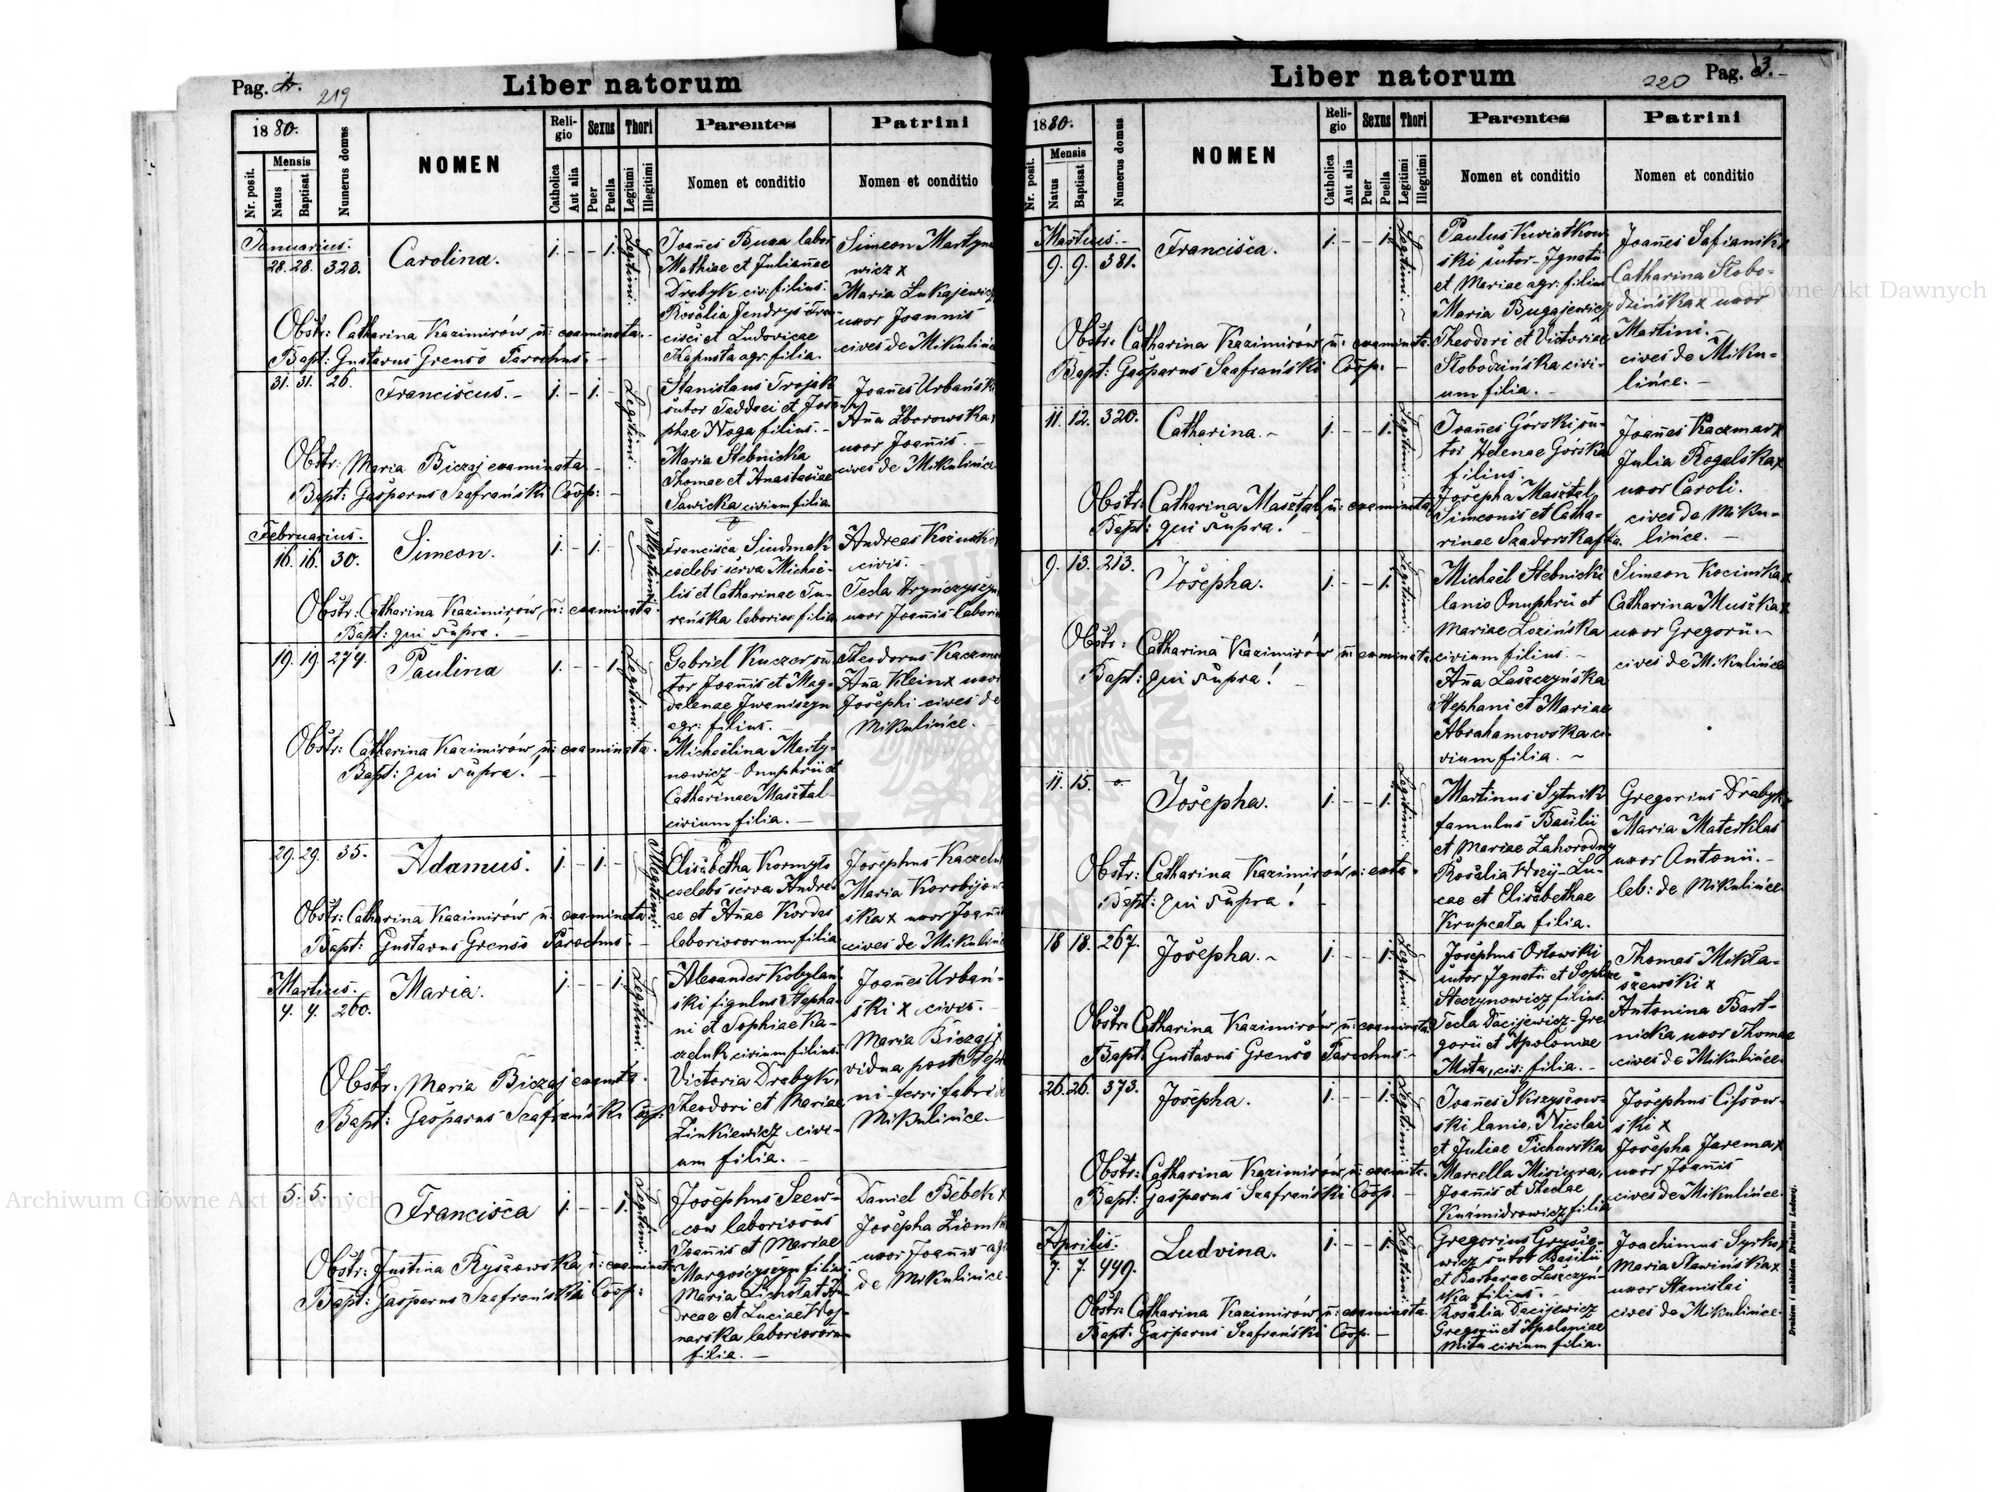 Pag. 2.
219
Liber natorum
1880.
Nr. posit.
Mensis
Natus
Baptisat
Numerus domus
NOMEN
Religio
Catholica
Aut alia
Sexus
Puer
Puella
Thori
Legitimi
Illegitimi
Parentes
Nomen et conditio
Patrini
Nomen et conditio
Januarius.
28. 28. 323.
Carolina.
1. - - 1.
Legitimi.
Joañes Buza labor
Mathiae et Julianae
Drabyk, civ: filius.
Rosalia Jendrys Fran-
cisci et Ludovicae
Kapusta agr: filia.
Simeon Martyno
wicz x
Maria Łukajewicz
uxor Joannis
cives de Mikulińce
Obstr: Catharina Kazimirów ñ: examinata.-
Bapt: Gustavus Grenso Parochus.-
31. 31. 26.
Franciscus.-
1. - 1. -
Legitimi.
Stanislaus Trojak
sutor Taddaei et Jose-
phae Noga filius.-
Maria Stebnicka
Thomae et Anastasiae
Sawicka civium filia.
Joañes Urbański
Aña Zborowska x
uxor Joañis.-
cives de Mikulińce
Obstr: Maria Biczaj examinata.
Bapt: Gasparus Szafrański Coop: -
Februarius.
16. 16. 30.
Simeon.
1. - 1. -
Illegitimi
Francisca Sindmak
coelebs serva Michaë-
lis et Catharinae Tu-
rańska laborior filia
Andreas Kozinski
civis.
Tecla Hryńczyszyn
uxor Joañis labor
Obstr: Catharina Kazimirów, ñ: examinata.
Bapt: qui supra.-
19. 19. 274.
Paulina
1. - - 1.
Legitimi.
Gabriel Kuczer su-
tor Joañis et Mag-
dalenae Iwaniszyn
agr: filius.-
Michaëlina Marty-
nowicz - Onuphrii et
Catharinae Masztal
civium filia.-
Theodorus Kaczma
Aña Klein x uxor
Josephi cives de
Mikulińce.-
Obstr: Catharina Kazimirów, ñ: examinata.
Bapt: qui supra! -
29. 29. 35.
Adamus.
1. - 1. -
Illegitimi.
Elisabetha Kormyło
coelebs serva Andre-
ae et Añae Kordas
laboriosorum filia
Josephus Kaczeluk
Maria Korobijow-
ska x uxor Joañis
cives de Mikulińce
Obstr: Catharina Kazimirów ñ: examinata
Bapt: Gustavus Grenso Parochus.-
Martius.
4. 4. 260.
Maria.
1. - - 1.
Legitimi.
Alexander Kobylań-
ski figulus Stepha-
ni et Sophiae Ka-
czeluk civium filius.
Victoria Drabyk,
Theodori et Mariae
Zinkiewicz civi-
um filia.-
Joañes Urbań-
ski x civis.-
Maria Biczaj x
vidua post Stepha
ni ferri fabri de
Mikulińce.-
Obstr: Maria Biczaj examta.
Bapt: Gasparus Szafrański Coop:
5. 5.
Francisca
1. - - 1.
Legitimi.
Josephus Szew-
cow laboriosus
Joañis et Mariae
Margosczyszyn filius.
Maria Lichołat An
dreae et Luciae
narska laboriosorum
filia.-
Daniel Bebek x
Josepha
uxor Joañis agr
de Mikulińce.
Obstr: Justina Ryszowska, ñ: examinata
Bapt: Gasparus Szafrański Coop:
Liber natorum
220
Pag. 3.-
1880.
Nr. posit.
Mensis
Natus
Baptisat
Numerus domus
NOMEN
Religio
Catholica
Aut alia
Sexus
Puer
Puella
Thori
Legitimi
Illegitimi
Parentes
Nomen et conditio
Patrini
Nomen et conditio
Martius.-
9. 9. 381.
Francisca.
1. - - 1.
Legitimi.
Paulus Kwiatkow-
ski sutor - Ignatii
et Mariae agr: filius
Maria Bugajewicz
Theodori et Victoriae
Słobodzińska civi-
um filia.-
Joañes Safianik x
Catharina Słobo-
dzińska x uxor
Martini.-
cives de Miku-
lińce.-
Obstr: Catharina Kazimirów ñ: examinata.
Bapt: Gasparus Szafrański Coop. -
11. 12. 320.
Catharina.-
1. - - 1.
Legitimi.
Joañes Górski su-
tor Helenae Górska
filius.
Josepha Masztal,
Simeonis et Catha-
rinae Szadorska filia.
Joañes Kaczmar x
Julia Rogalska x
uxor Caroli.
cives de Miku-
lińce.-
Obstr: Catharina Masztal, ñ: examinata
Bapt: qui supra!
9. 13. 213.
Josepha.
1. - - 1.
Legitimi.
Michaël Stebnicki
lanio Onuphrii et
Mariae Łozińska
civium filius.-
Aña Łaszczyńska
Stephani et Mariae
Abrahamowska ci-
vium filia.-
Simeon Kocimska x
Catharina Muszka x
uxor Gregorii.-
cives de Mikulińce
Obstr: Catharina Kazimirów ñ: examinata.
Bapt: qui supra! -
11. 15. -o-
Josepha.
1. - - 1.
Legitimi.
Martinus Sytnik
famulus Basilii
et Mariae Zahorodny
Rosalia Wozy - Lu-
cae et Elisabethae
Krupcata filia.
Gregorius Drabyk x
Maria Materklas
uxor Antonii.-
lab: de Mikulińce.
Obstr: Catharina Kazimirów, ñ: exata.
Bapt: qui supra! -
18. 18. 267.
Josepha.-
1. - - 1.
Legitimi.
Josephus Orłowski
sutor Ignatii et Sophiae
Steczynowicz filius.
Tecla Dacijewicz - Gre
gorii et Apoloniae
Mita, civ: filia.-
Thomas Mikła-
szewski x
Antonina Bart-
nicka uxor Thomae
cives de Mikulińce.
Obstr: Catharina Kazimirów ñ: examinata.
Bapt: Gustavus Grenso Parochus.-
26. 26. 373.
Josepha.
1. - - 1.
Legitimi.
Joañes Skrzyszow-
ski lanio, Nicolai
et Juliae Pichurska
Marcella Misiura,
Joañis et Theclae
Kuzmidrowicz filia
Josephus Cissow-
ski x
Josepha Jarema x
uxor Joañis
cives de Mikulińce.
Obstr: Catharina Kazimirów, ñ: examinata.
Bapt: Gasparus Szafrański Coop. -
Aprilis.
7. 7. 449.
Ludvina.
1. - - 1.
Legitimi.
Gregorius Grysie-
wicz sutor Basilii
et Barbarae Łaszczyń-
ska filius.-
Rosalia Dacijewicz
Gregorii et Apoloniae
Mita civium filia.
Joachimus Syrko x
Maria Sławińska x
uxor Stanislai
cives de Mikulińce.
Obstr: Catharina Kazimirów ñ: examinata.
Bapt: Gasparus Szafrański Coop. -
Drukiem i nakładem Drukarni Ludowej.
Archiwum Główne Akt Dawnych
Archiwum Główne Akt Dawnych